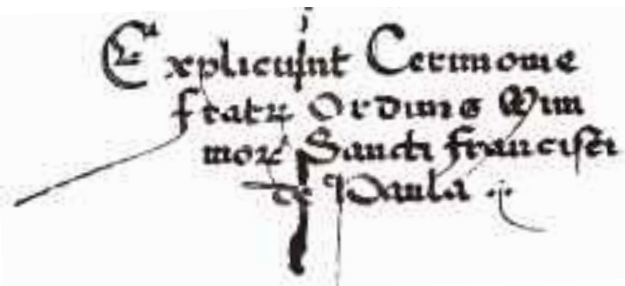 Expliciunt Cerimonie
fratrꝝ Ordinis Mini
morꝝ Sancti francisci
de Paula